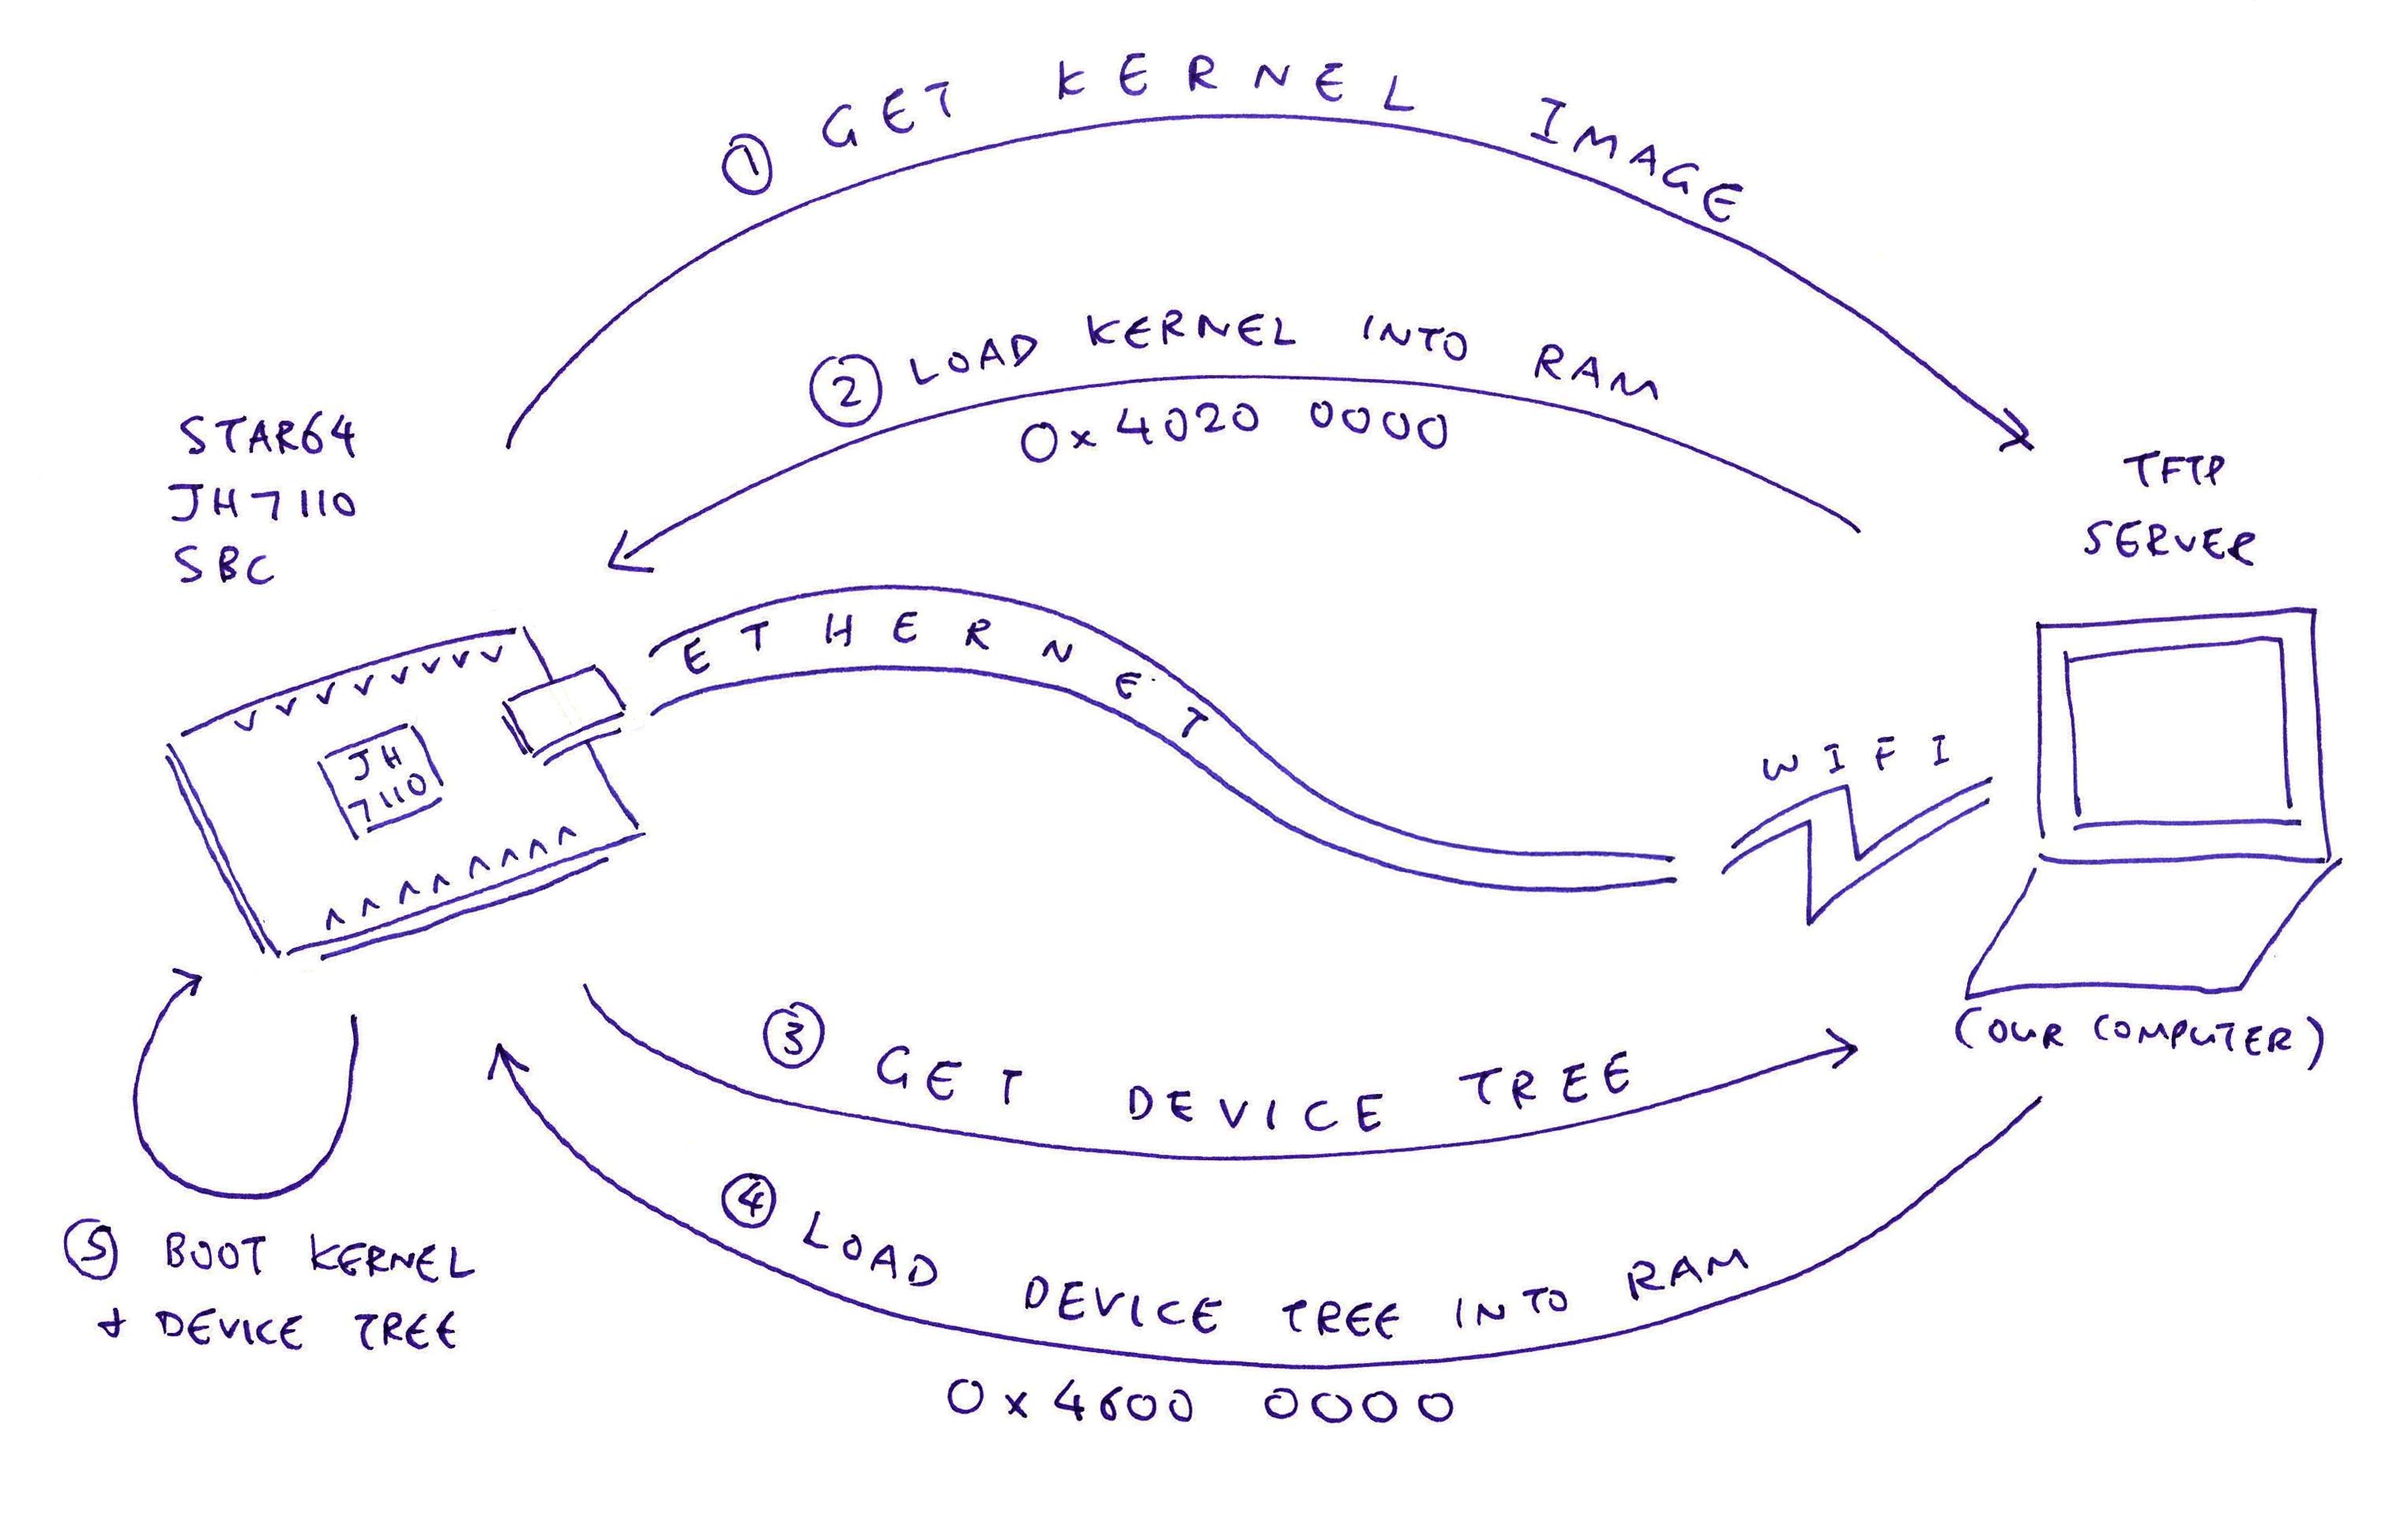 ① GET KERNEL IMAGE
② LOAD KERNEL INTO RAM
0x4020 0000
STAR64
JH7110
SBC
TFTP
SERVER
ETHERNET
WIFI
JH
7110
(OUR COMPUTER)
③ GET DEVICE TREE
④ LOAD DEVICE TREE INTO RAM
0x4600 0000
⑤ BOOT KERNEL
+ DEVICE TREE